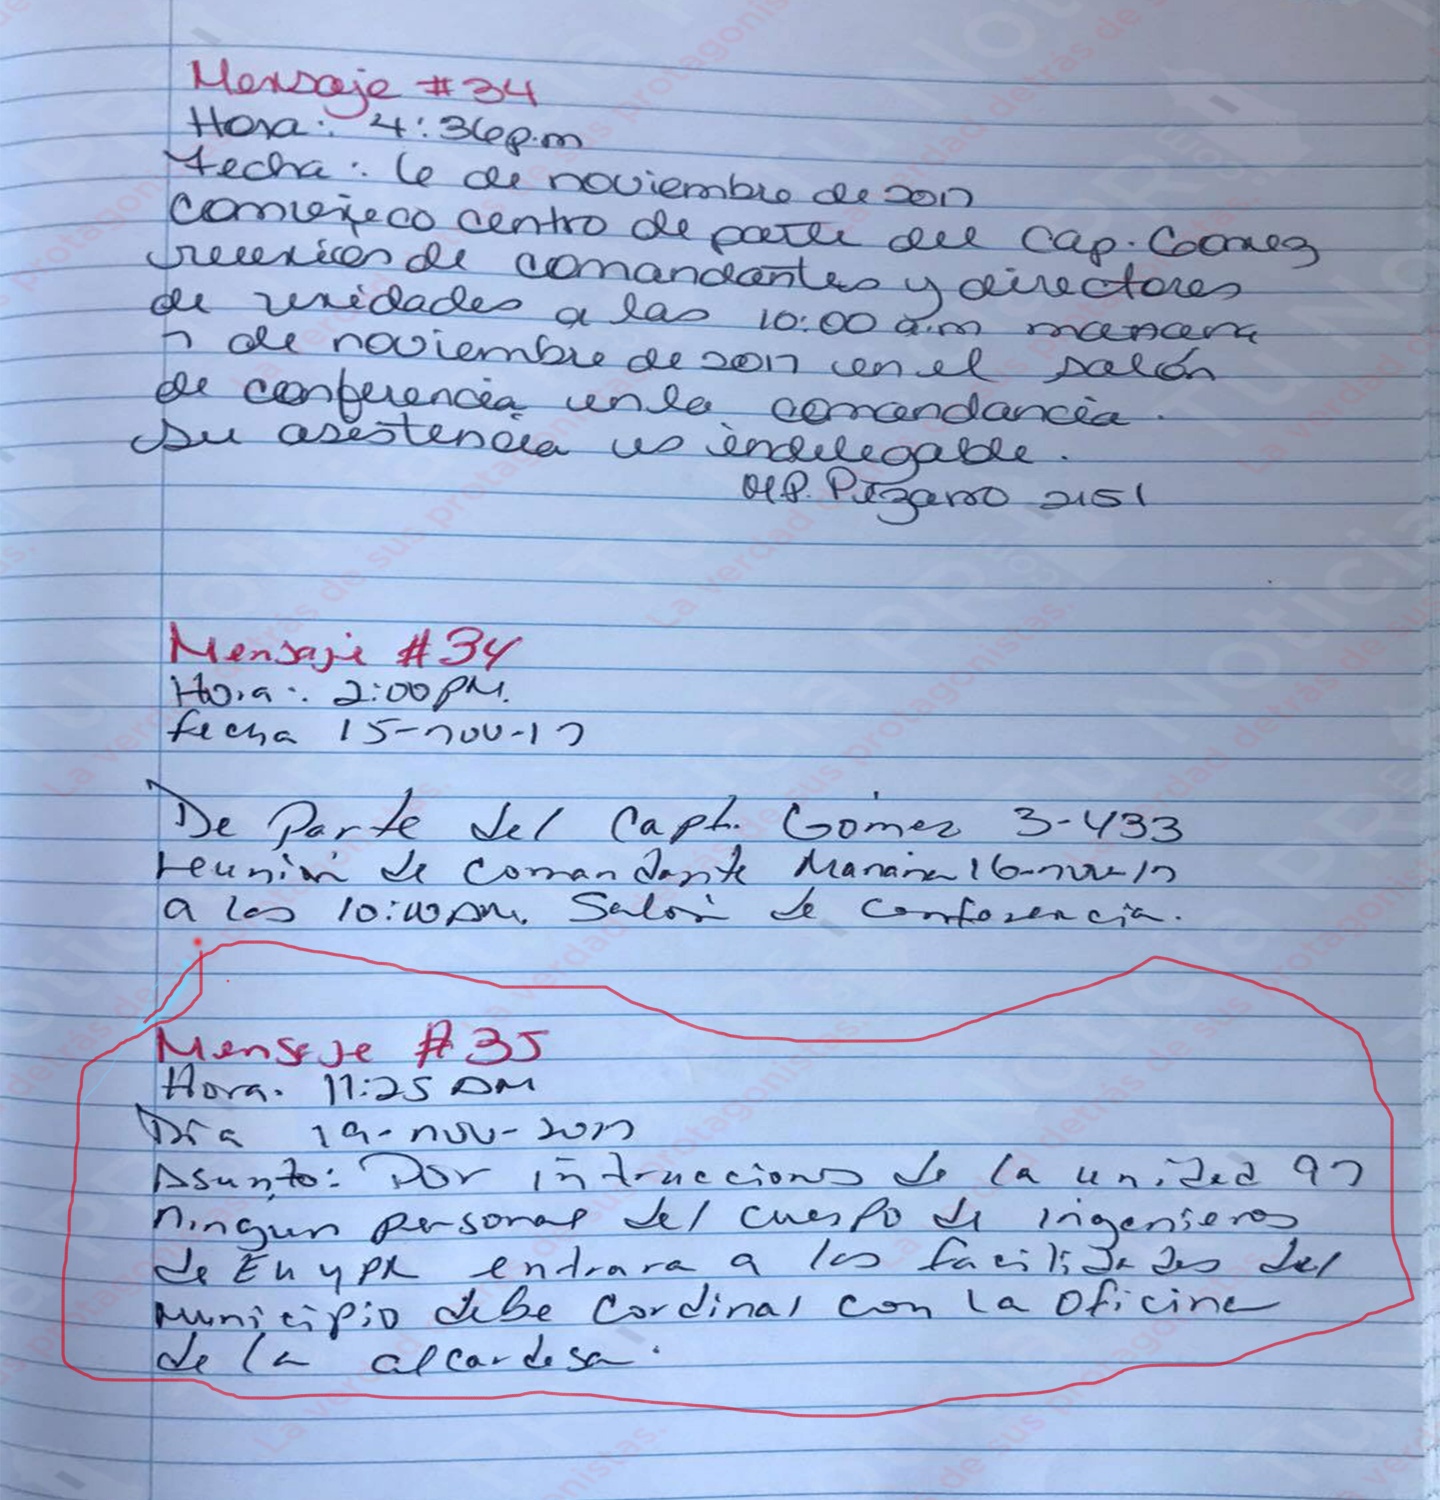 Mensaje #34
Hora: 4:36p.m
Fecha: 6 de noviembre de 2017
centro de parte del Cap. Gomez
reunion de comandantes y directores
de unidades a las 10:00 a.m manana
7 de noviembre de 2017 en el salón
de conferencia en la comandancia.
Su asistencia es indelegable.
Pizarro 2151
Mensaje #34
Hora: 2:00 PM.
fecha 15-nov-17
De Parte del Capt. Gómez 3-433
reunión de Comandante Manana 16-nov-17
a las 10:00 AM. Salón de Conferencia.
Mensaje #35
Hora. 11:25 AM
Día 19-nov-2017
Asunto: Por intrucciones de la unidad 97
ningun personal del cuerpo de ingenieros
de EU y PR entrara a las facilidades del
municipio debe cordinal con la oficina
de la alcardesa.